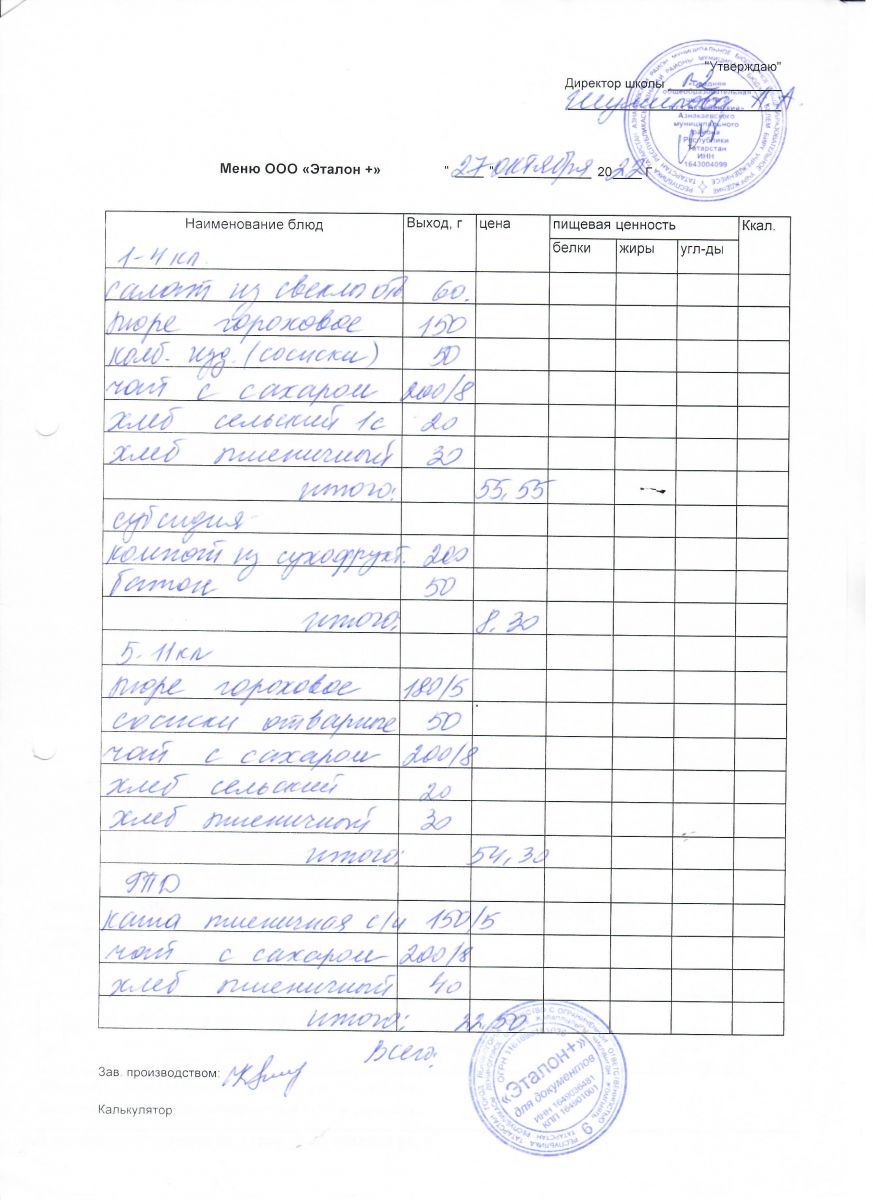 "Утверждаю"
Директор школы
Меню ООО «Эталон +» " 27 " октября 2022 г
Наименование блюд Выход, г цена пищевая ценность Ккал.
белки жиры угл-ды
1-4 кл.
салат из свеклы отв 60.
пюре гороховое 150
колб. изд. (сосиски) 50
чай с сахаром 200/8
хлеб сельский 1с 20
хлеб пшеничный 30
итого: 55,55
субсидия
компот из сухофрукт. 200
батон 50
итого: 8,30
5-11 кл
пюре гороховое 180/5
сосиски отварные 50
чай с сахаром 200/8
хлеб сельский 20
хлеб пшеничный 30
итого: 54,30
ГПД
каша пшеничная с/м 150/5
чай с сахаром 200/8
хлеб пшеничный 40
итого: 22,50
Всего:
Зав. производством:
Калькулятор
общеобразовательная
Азнакаевского
муниципального
района
Республики
Татарстан
ИНН
1643004099
«Эталон+»
для документов
ИНН 1649026481
КПП 164901001